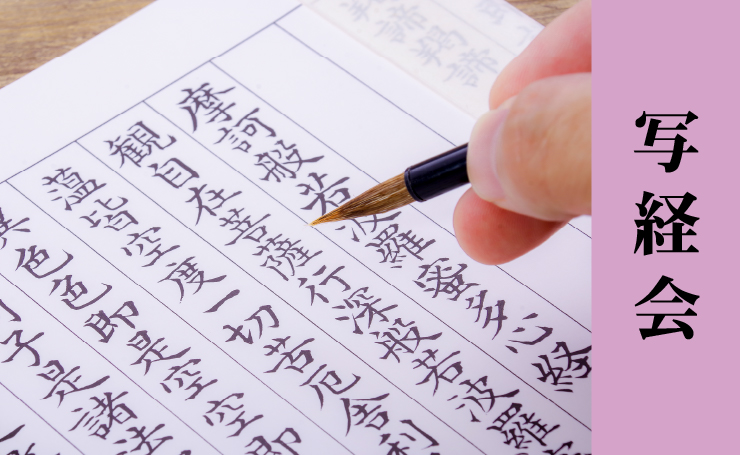 写経会
羯諦羯諦
摩訶般若波羅蜜多心経
観自在菩薩行深般若波羅
蘊皆空度一切苦厄舎利
異色色即是空空即
子是諸法